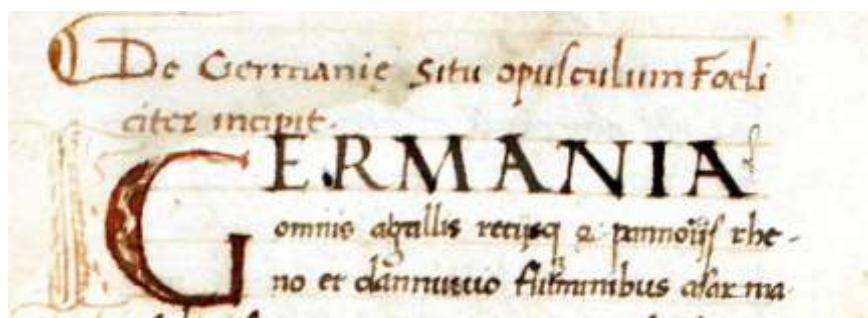 De Germanię situ opusculum Foeli
citer incipit.
GERMANIA
omnis agallis retijsq & pannoijs rhe-
no et dannuuio fluminibus asarma